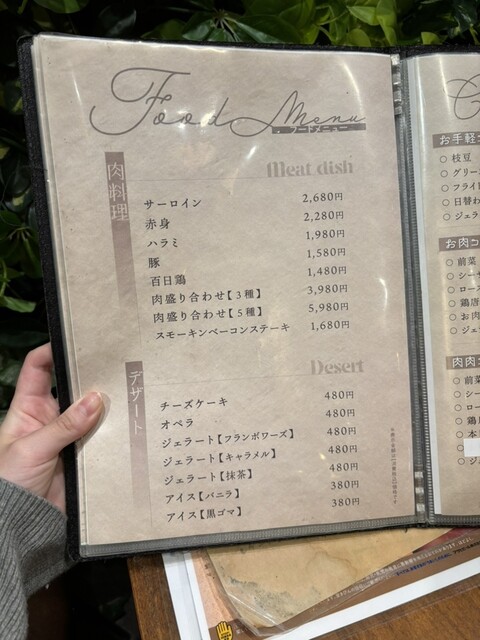 Food Menu
フードメニュー
肉料理
Meat dish
サーロイン 2,680円
赤身 2,280円
ハラミ 1,980円
豚 1,580円
百日鶏 1,480円
肉盛り合わせ【3種】 3,980円
肉盛り合わせ【5種】 5,980円
スモーキンベーコンステーキ 1,680円
デザート
Desert
チーズケーキ 480円
オペラ 480円
ジェラート【フランボワーズ】 480円
ジェラート【キャラメル】 480円
ジェラート【抹茶】 480円
アイス【バニラ】 380円
アイス【黒ゴマ】 380円
お手軽
○ 枝豆
○ グリー
○ フライ
○ 日替わ
○ ジェラ
お肉コ
○ 前菜
○ シーサ
○ ロース
○ 鶏唐
○ お肉
○ ジェ
肉肉
○ 前菜
○ シー
○ ロー
○ 鶏唐
○ 本
○ ジ